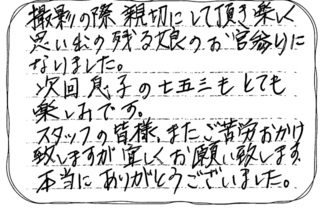 撮影の際親切にして頂き楽しく
思い出の残る娘のお宮参りに
なりました。
次回息子の七五三もとても
楽しみです。
スタッフの皆様、またご苦労おかけ
致しますが宜しくお願い致します
本当にありがとうございました。